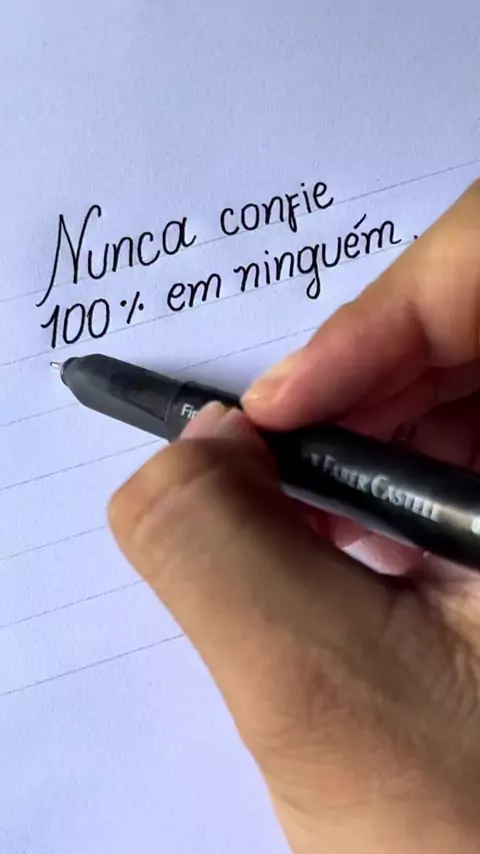 Nunca confie
100% em ninguém.
Fin
FABER CASTELL